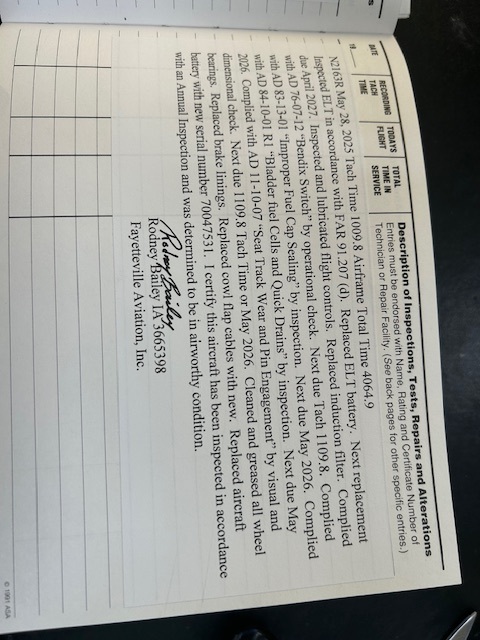 DATE
19
RECORDING TACH TIME
TODAYS FLIGHT
TOTAL TIME IN SERVICE
Description of Inspections, Tests, Repairs and Alterations
Entries must be endorsed with Name, Rating and Certificate Number of
Technician or Repair Facility. (See back pages for other specific entries.)
N2163R May 28, 2025 Tach Time 1009.8 Airframe Total Time 4064.9
Inspected ELT in accordance with FAR 91.207 (d). Replaced ELT battery. Next replacement
due April 2027. Inspected and lubricated flight controls. Replaced induction filter. Complied
with AD 76-07-12 "Bendix Switch" by operational check. Next due Tach 1109.8. Complied
with AD 83-13-01 "Improper Fuel Cap Sealing" by inspection. Next due May 2026. Complied
with AD 84-10-01 R1 "Bladder fuel Cells and Quick Drains" by inspection. Next due May
2026. Complied with AD 11-10-07 "Seat Track Wear and Pin Engagement" by visual and
dimensional check. Next due 1109.8 Tach Time or May 2026. Cleaned and greased all wheel
bearings. Replaced brake linings. Replaced cowl flap cables with new. Replaced aircraft
battery with new serial number 70047531. I certify this aircraft has been inspected in accordance
with an Annual Inspection and was determined to be in airworthy condition.
Rodney Bailey
Rodney Bailey IA 3665398
Fayetteville Aviation, Inc.
© 1991 ASA